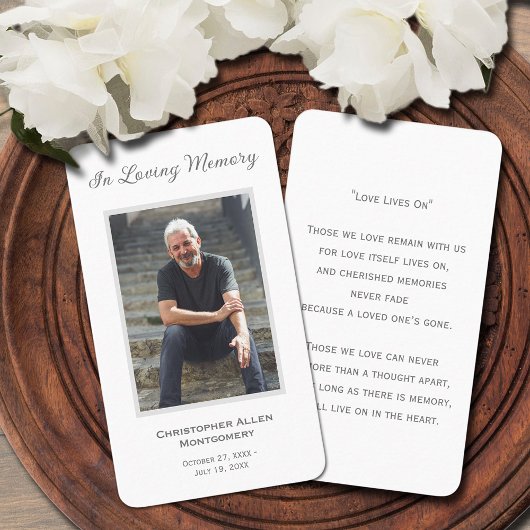 In Loving Memory
Christopher Allen
Montgomery
October 27, XXXX -
July 19, 20XX
"Love Lives On"
Those we love remain with us
for love itself lives on,
and cherished memories
never fade
because a loved one's gone.
Those we love can never
more than a thought apart,
long as there is memory,
live on in the heart.